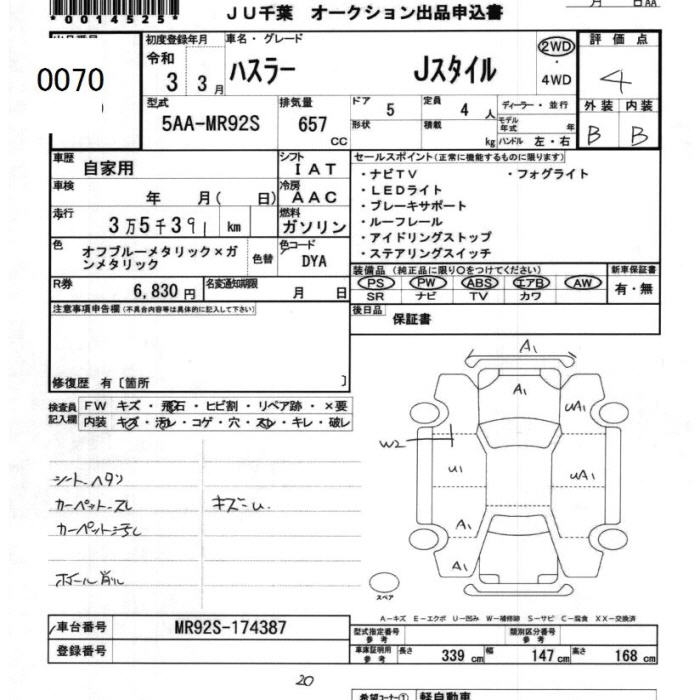 *0014525*
JU千葉 オークション出品申込書
月 日AA
0070
初度登録年月
令和
3 3月
車名・グレード
ハスラー Jスタイル
2WD
・
4WD
評価点
4
外装 内装
B B
型式
5AA-MR92S
排気量
657 cc
ドア 5 定員 4 人
形状 積載 kg
ディーラー・並行
モデル年式 年
ハンドル 左・右
車歴 自家用
シフト IAT
車検 年 月( 日)
冷房 AAC
走行 3万5千391 km
燃料 ガソリン
色 オフブルーメタリック×ガンメタリック
色替
色コード DYA
R券 6,830円
名変通知期限 月 日
セールスポイント(正常に機能するものに限ります)
・ナビTV ・フォグライト
・LEDライト
・ブレーキサポート
・ルーフレール
・アイドリングストップ
・ステアリングスイッチ
装備品(純正品に限り○をつけてください)
PS PW ABS エアB AW
SR ナビ TV カワ
新車保証書
有・無
注意事項申告欄(不具合内容等は具体的に記入して下さい)
後日品 保証書
修復歴 有〔箇所 〕
検査員記入欄
FW キズ・飛石・ヒビ割・リペア跡・×要
内装 キズ・汚レ・コゲ・穴・スレ・キレ・破レ
シートヘタリ
カーペットスレ キズ
カーペット汚レ
ホイール削リ
A1
A1
UA1
W2
U1
UA1
A1
A1
A1
スペア
A-キズ E-エクボ U-凹み W-補修跡 S-サビ C-腐食 XX-交換済
車台番号 MR92S-174387
登録番号
型式指定番号 参考
類別区分番号 参考
車庫証明用 参考 長さ 339cm 幅 147cm 高さ 168cm
20
希望コーナー① 軽自動車